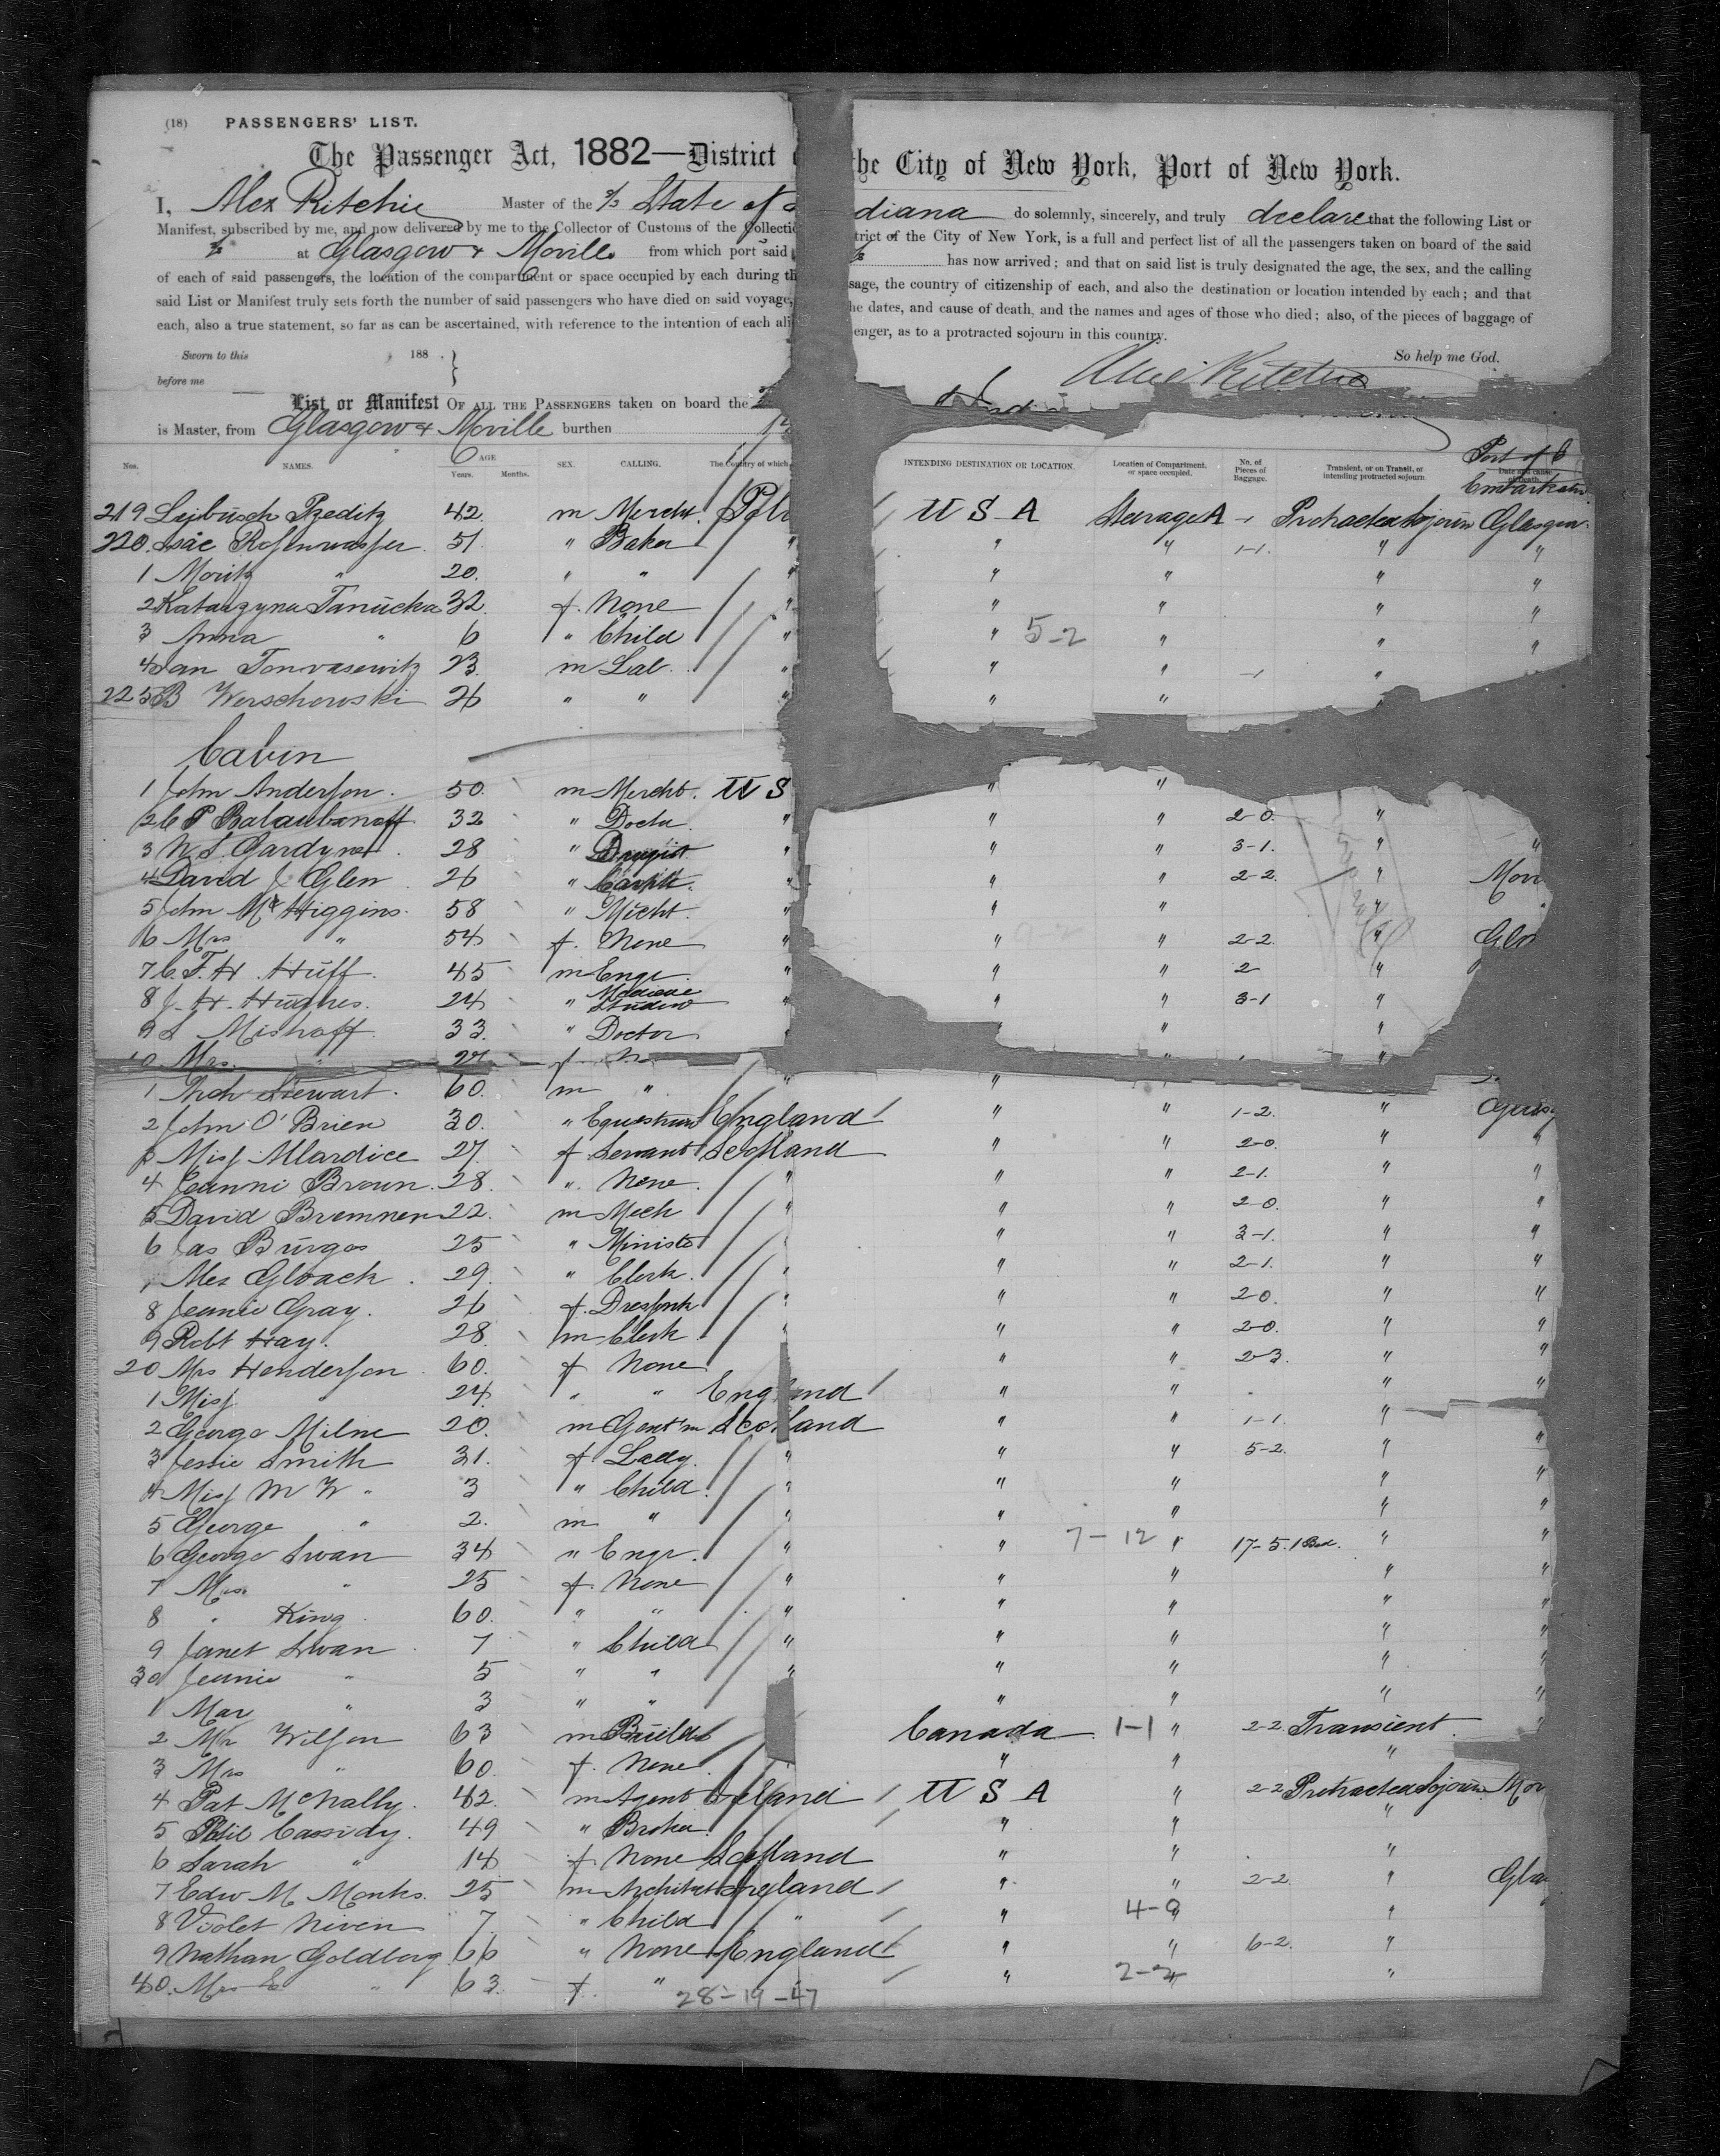 (18) PASSENGERS' LIST.
The Passenger Act, 1882—District he City of New York, Port of New York.
I, Alex Ritchie Master of the S/S State of diana do solemnly, sincerely, and truly declare that the following List or
Manifest, subscribed by me, and now delivered by me to the Collector of Customs of the Collectio trict of the City of New York, is a full and perfect list of all the passengers taken on board of the said
at Glasgow & Moville from which port said has now arrived; and that on said list is truly designated the age, the sex, and the calling
of each of said passengers, the location of the compartment or space occupied by each during th sage, the country of citizenship of each, and also the destination or location intended by each; and that
said List or Manifest truly sets forth the number of said passengers who have died on said voyage, he dates, and cause of death, and the names and ages of those who died; also, of the pieces of baggage of
each, also a true statement, so far as can be ascertained, with reference to the intention of each ali enger, as to a protracted sojourn in this country.
Sworn to this 188 So help me God.
before me Alex Ritchie
List or Manifest OF ALL THE PASSENGERS taken on board the
is Master, from Glasgow & Moville burthen
Port of
Embarkation
Nos. NAMES. AGE Years. Months. SEX. CALLING. The Country of which INTENDING DESTINATION OR LOCATION. Location of Compartment, or space occupied. No. of Pieces of Baggage. Transient, or on Transit, or intending protracted sojourn. Date and cause of Death.
219 Lejbusch Pzeditz 42 m Mercht. U S A Steerage A 1 Protracted Sojourn Glasgow
220 Isac Rosenwasser 51 " Baker " " " 1-1 " "
1 Moritz " 20 " " " " " " "
2 Katarzyna Tanucka 32 f. None " " " " "
3 Anna " 6 " Child " " 5-2 " " "
4 Jan Tonvasewitz 23 m Lab. " " " 1 " "
225 B Werschowski 26 " " " " " "
Cabin
1 John Anderson 50 m Mercht. U S " "
2 C P Balaubanoff 32 " Doctr " " " 2-0 "
3 W. S. Gardyner 28 " Drugist " " " 3-1 " "
4 David J Glen 26 " " " " 2-2 " Mov
5 John Mc Higgins 58 " Mercht. " " " " "
6 Mrs " 54 f. None " " " 2-2 " Gla
7 C. F. H. Huff 45 m Engr. " " 2 "
8 J. H. Hughes 24 " Medicine Student " " " 3-1 "
9 S Mishoff 33 " Doctor " " "
10 Mrs. 27 f " "
1 Arch Stewart 60 m " " "
2 John O'Brien 30 " Equestrian England " " 1-2 "
3 Miss Mlardice 27 f Servant Scotland " " 2-0 " "
4 Jeannie Brown 28 " None " " " 2-1 " "
5 David Bremner 22 m Mech " " " 2-0 " "
6 Jas Burgos 25 " Ministr " " 3-1 " "
7 Alex Gloack 29 " Clerk " " " 2-1 " "
8 Jeanie Gray 26 f. Dressmk " " " 2-0 " "
9 Robt Hay 28 m Clerk " " " 2-0 " "
20 Mrs Henderson 60 f None " " 2-3 " "
1 Miss " 24 " " England " " " "
2 George Milne 20 m Gent'm Scotland " " 1-1 "
3 Jessie Smith 31 f Lady " " " 5-2 " "
4 Miss M W " 3 " Child " " " " "
5 George " 2 m " " " " " "
6 George Swan 34 " Engr. " " 7-12 " 17-5. 1 Box. " "
7 Mrs " 25 f. None " " " " "
8 " King 60 " " " " " " "
9 Janet Swan 7 " Child " " " " "
30 Jeanie " 5 " " " " " " "
1 Mar " 3 " " " " " "
2 Mr Wilson 63 m Builder Canada 1-1 " 2-2 Transient "
3 Mrs " 60 f. None " " "
4 Pat McNally 42 m Agent Ireland U S A " 2-2 Protracted Sojourn Mov
5 Phil Cassidy 49 " Broker " " "
6 Sarah " 14 f None Scotland " " "
7 Edw M Monks 25 m Architect England " " 2-2 " Gla
8 Violet Niven 7 " Child " " 4-0 " "
9 Nathan Goldberg 66 " None England " " 6-2 "
40 Mrs E " 63 f. " " 2-2 " "
28-19-47